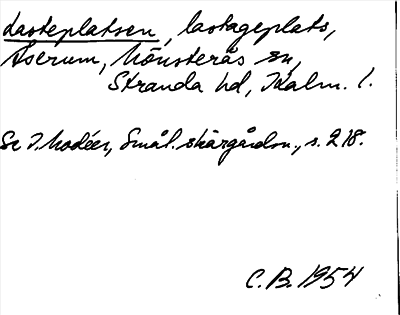 Lasteplatsen, lastageplats,
Åserum, Mönsterås sn,
Stranda hd, Kalm. l.
Se I. Modéer, Smål. skärgårdsn., s. 218.
C.B. 1954